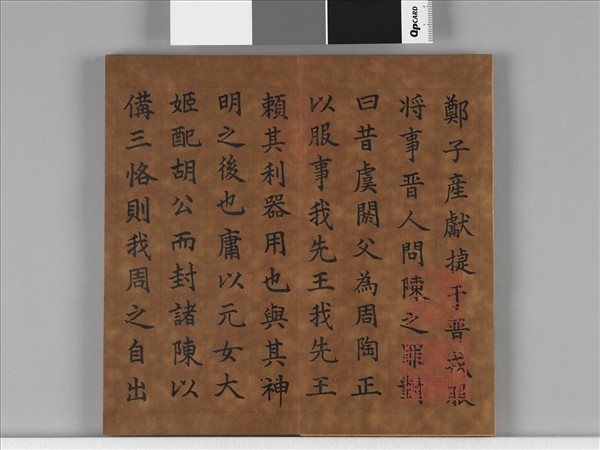 QPCARD
鄭子產獻捷于晋戎服
将事晋人問陳之罪對
曰昔虞閼父為周陶正
以服事我先王我先王
頼其利器用也與其神
明之後也庸以元女大
姬配胡公而封諸陳以
備三恪則我周之自出